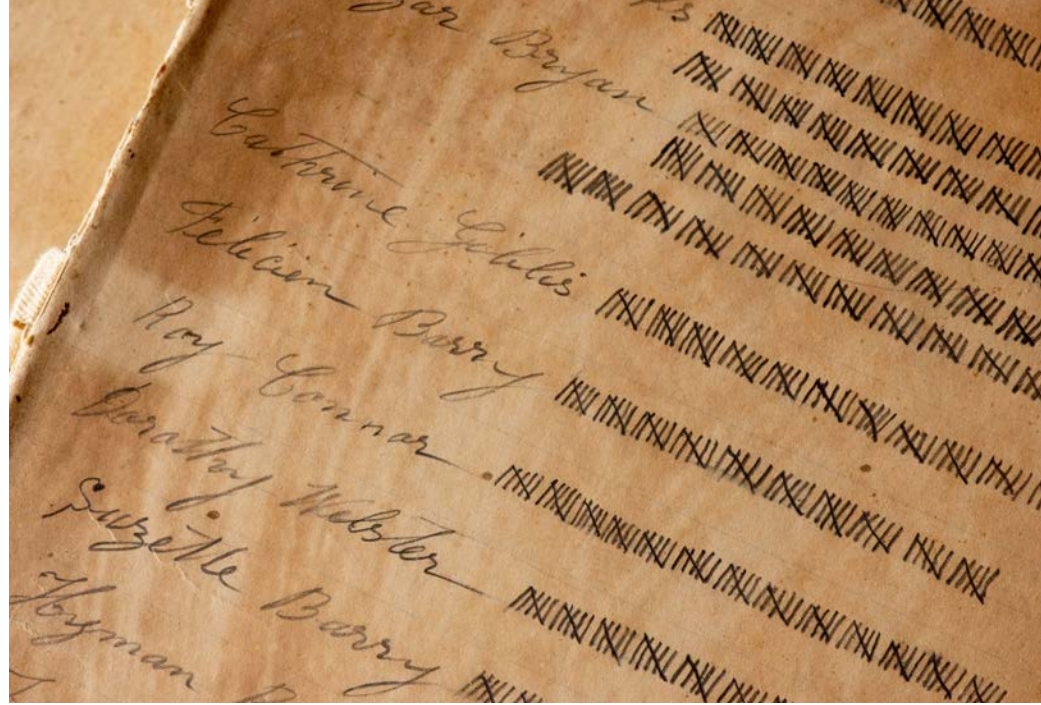 Bryan
Cathrine Gililis
Félicien Barry
Roy Connar
Darathy Webster
Suzette Barry
Hoyman